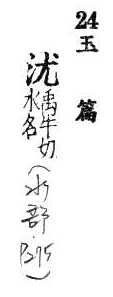 24 玉篇
沋 禹牛切
水名
(水部